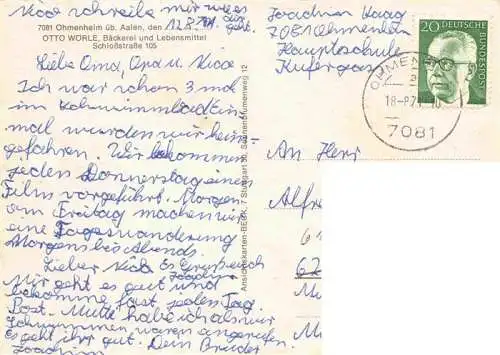 Nico schreibe mir wies
dir geht.
7081 Ohmenheim üb. Aalen, den 12.8.71
OTTO WÖRLE, Bäckerei und Lebensmittel
Schloßstraße 105
Liebe Oma, Opa u. Nico
Ich war schon 3 mal
im Schwimmbad ein
mal wurden wir heim
gefahren. Wir bekommen
jeden Donnerstag einen
Film vorgeführt. Morgen
am Freitag machen wir
eine Tageswanderung
Morgens bis Abends.
Lieber Nico Es Grüßt euch
Joachim
Mir geht es gut und
bekomme fast jeden Tag
Post. Mutti habe ich als wir
Schwimmen waren angerufen.
Es geht ihr gut. Dein Bruder
Joachim
Ansichtskarten-BECK, 7 Stuttgart 50, Sonnenbrunnenweg 12
Joachim Haag
7081 Ohmenheim
Hauptschule
20 DEUTSCHE
BUNDESPOST
OHMENH
18-8.71
7081
An Herr
Alfre
6
67
Mu